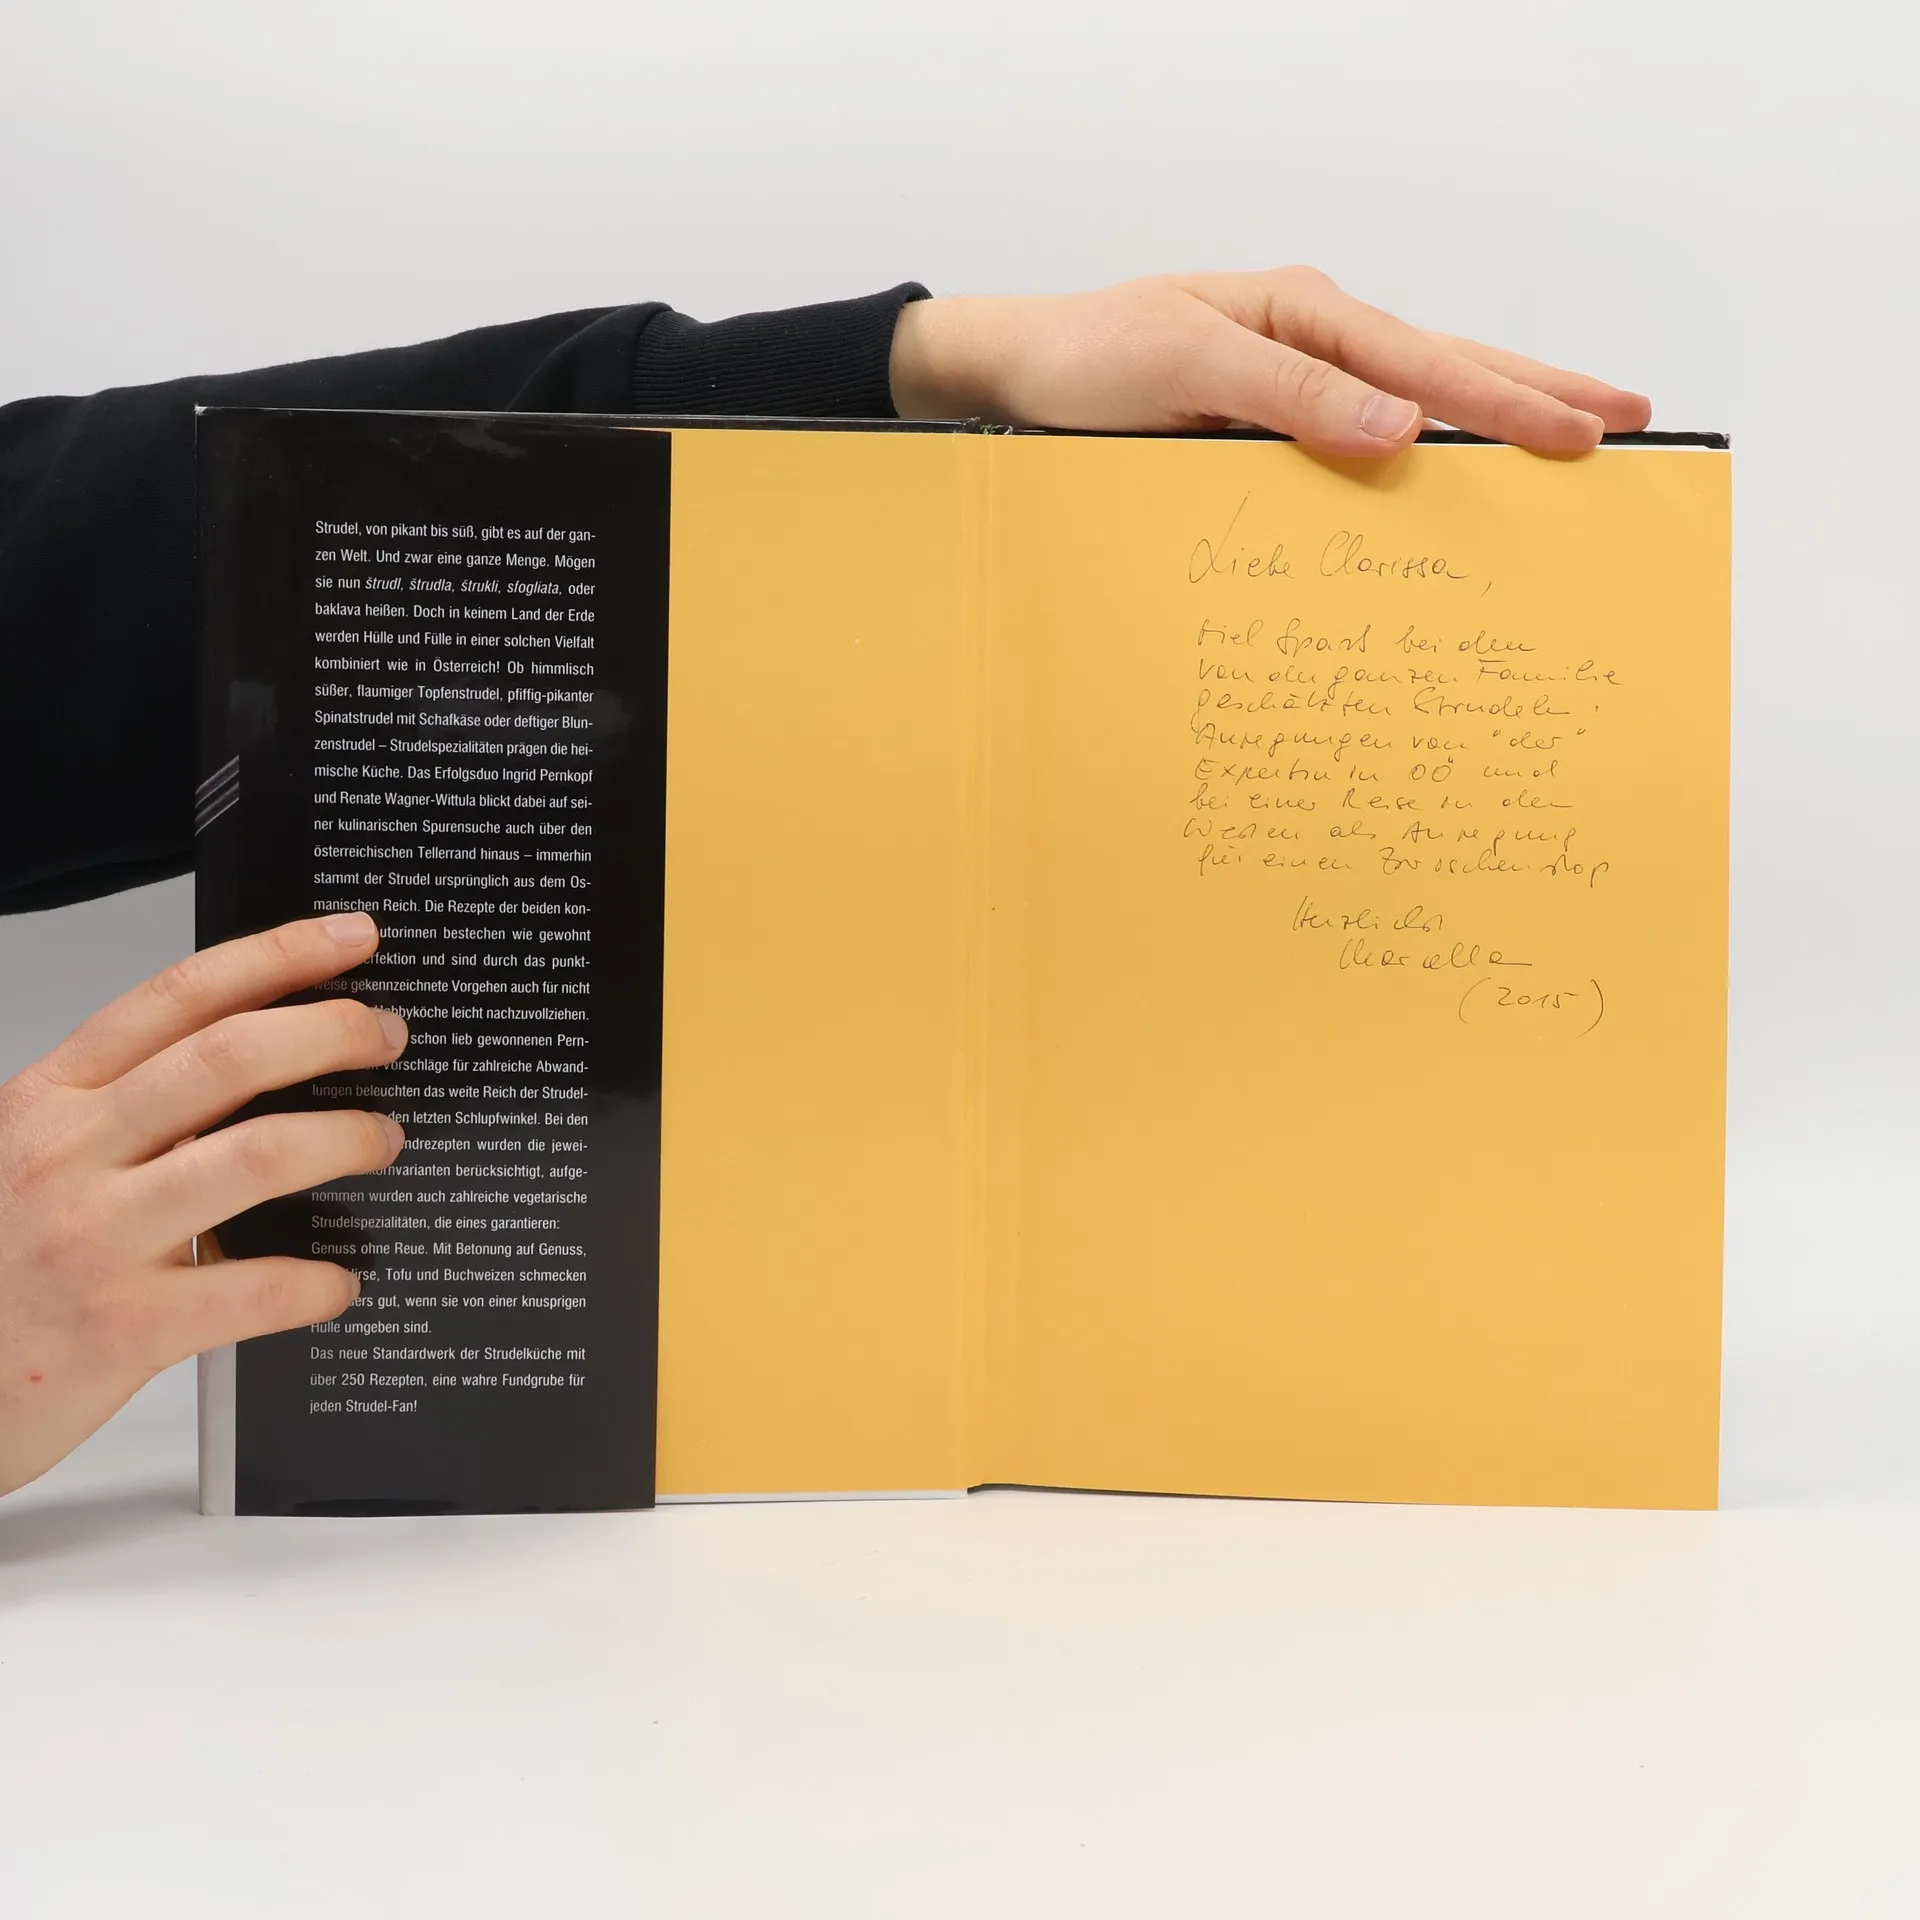 Strudel, von pikant bis süß, gibt es auf der gan-
zen Welt. Und zwar eine ganze Menge. Mögen
sie nun štrudl, štrudla, štrukli, sfogliata, oder
baklava heißen. Doch in keinem Land der Erde
werden Hülle und Fülle in einer solchen Vielfalt
kombiniert wie in Österreich! Ob himmlisch
süßer, flaumiger Topfenstrudel, pfiffig-pikanter
Spinatstrudel mit Schafkäse oder deftiger Blun-
zenstrudel – Strudelspezialitäten prägen die hei-
mische Küche. Das Erfolgsduo Ingrid Pernkopf
und Renate Wagner-Wittula blickt dabei auf sei-
ner kulinarischen Spurensuche auch über den
österreichischen Tellerrand hinaus – immerhin
stammt der Strudel ursprünglich aus dem Os-
manischen Reich. Die Rezepte der beiden kon-
utorinnen bestechen wie gewohnt
rfektion und sind durch das punkt-
weise gekennzeichnete Vorgehen auch für nicht
obbyköche leicht nachzuvollziehen.
schon lieb gewonnenen Pern-
vorschläge für zahlreiche Abwand-
lungen beleuchten das weite Reich der Strudel-
den letzten Schlupfwinkel. Bei den
ndrezepten wurden die jewei-
ornvarianten berücksichtigt, aufge-
nommen wurden auch zahlreiche vegetarische
Strudelspezialitäten, die eines garantieren:
Genuss ohne Reue. Mit Betonung auf Genuss,
irse, Tofu und Buchweizen schmecken
ers gut, wenn sie von einer knusprigen
Hülle umgeben sind.
Das neue Standardwerk der Strudelküche mit
über 250 Rezepten, eine wahre Fundgrube für
jeden Strudel-Fan!
Liebe Clarissa,
viel Spaß bei den
von der ganzen Familie
geschätzten Strudeln.
Anregungen von "der"
Expertin in OÖ und
bei einer Reise in den
Westen als Anregung
für einen Zwischenstop
Herzlichst
Marcella
(2015)